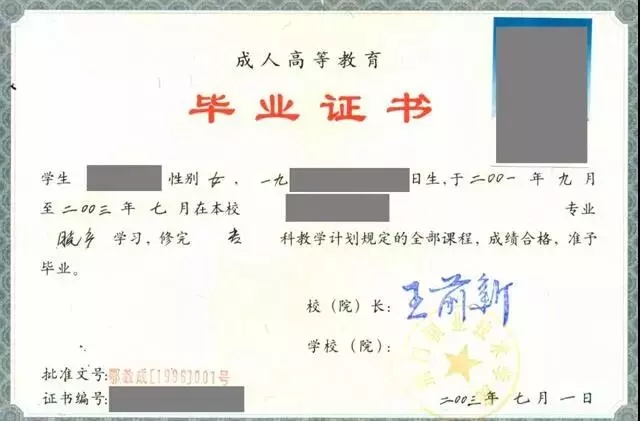 成人高等教育
毕业证书
学生 性别 女，一九 日生，于二〇〇一年九月
至二〇〇三年七月在本校 专业
脱产 学习，修完 专 科教学计划规定的全部课程，成绩合格，准予
毕业。
校（院）长：王前新
学校（院）：
批准文号：鄂教成[1996]001号
证书编号：
二〇〇三年七月一日